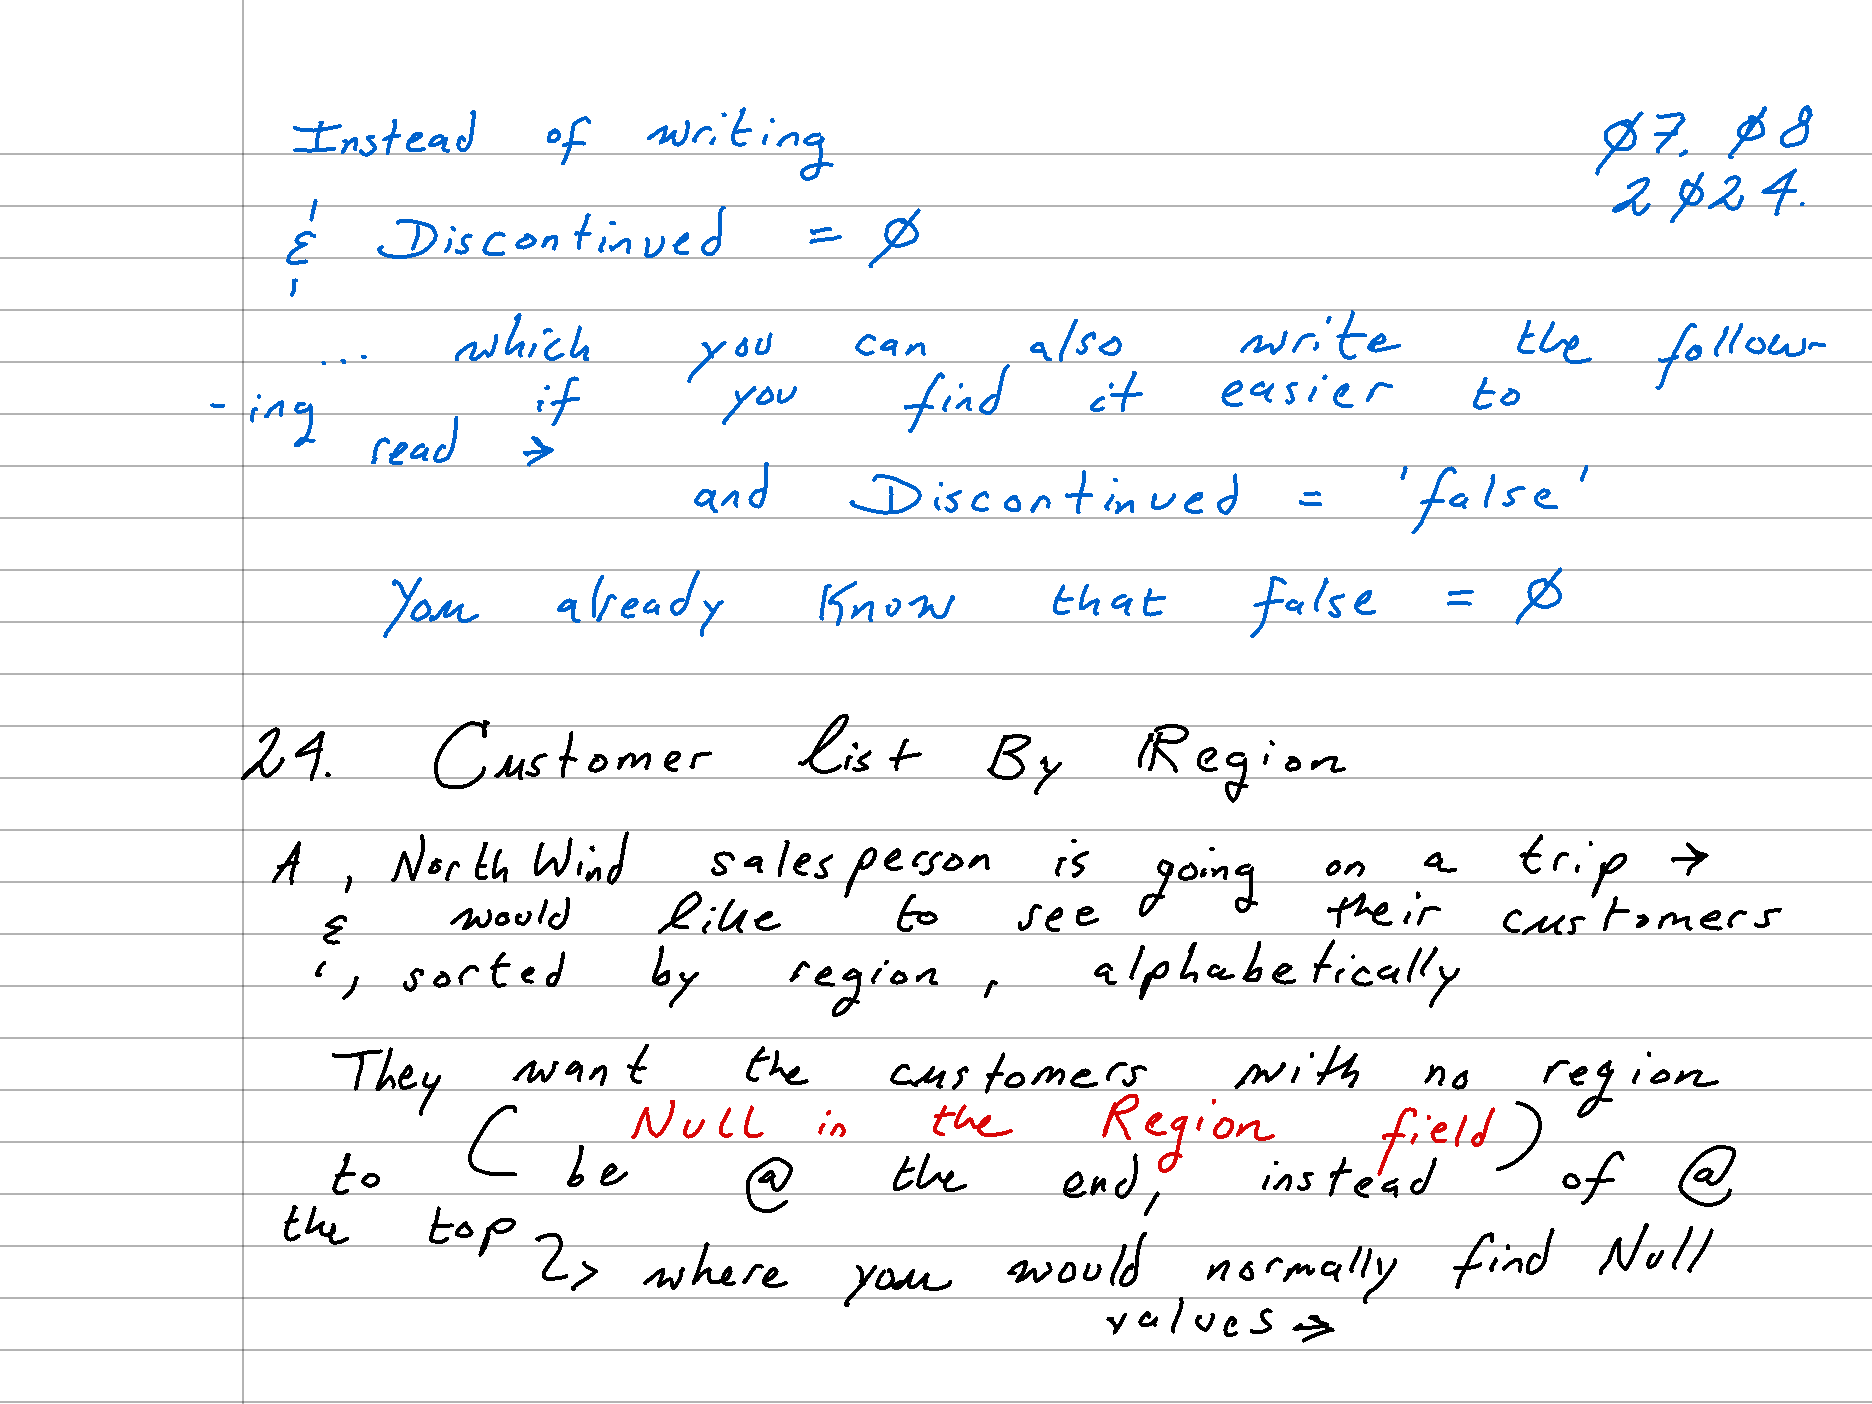 Instead of writing
Ø7. Ø8
2Ø24.
& Discontinued = Ø
... which you can also write the follow-
-ing if you find it easier to
read →
and Discontinued = 'false'
You already know that false = Ø
24. Customer list By Region
A, NorthWind salesperson is going on a trip →
& would like to see their customers
', sorted by region, alphabetically
They want the customers with no region
( Null in the Region field )
to be @ the end, instead of @
the top
↳ where you would normally find Null
values →